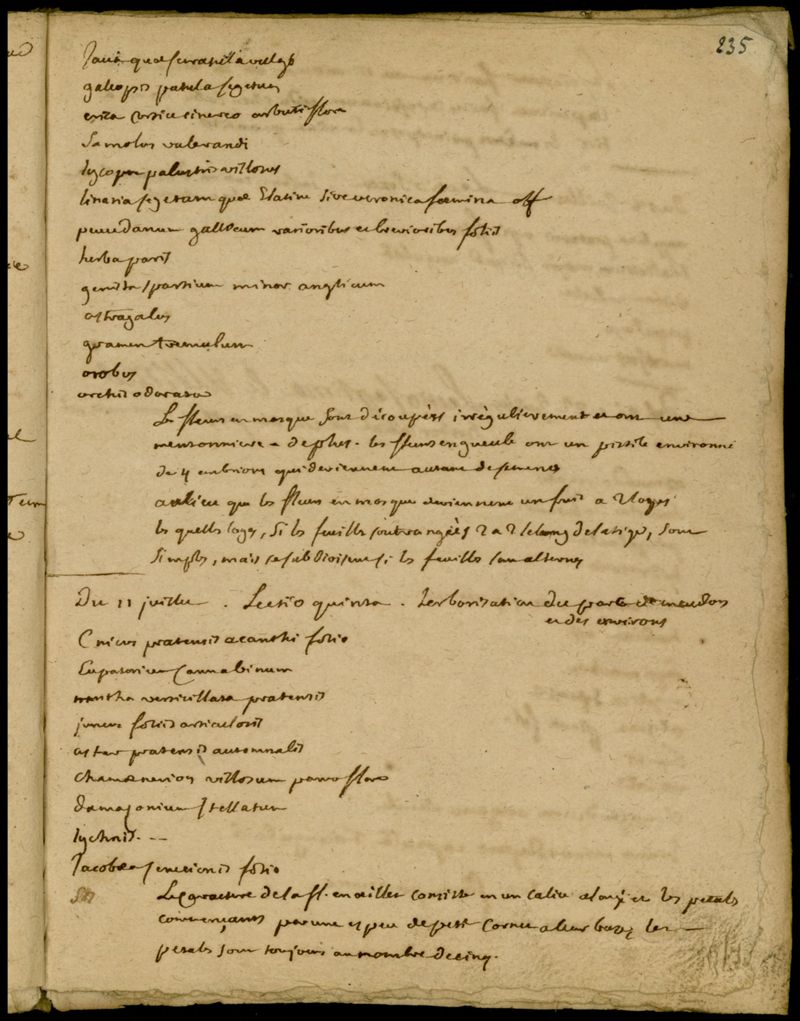 235
Jacea quae serratula vulg.
galeopsis patula segetum
erica cortice cinereo arbuti flore
Samolus valerandi
lycopus palustris villosus
linaria segetum quae Elatine sive veronica foemina off
peucedanum gallicum rarioribus et brevioribus foliis
herba paris
genista spartium minor anglicum
astragalus
gramen tremulum
orobus
orchis odorata
Les fleurs en masque sont découpées irrégulierement et ont une
mentonniere de plus. les fleurs en gueule ont un pistile environné
de 4 embrions qui deviennent autant de semences
au lieu que les fleurs en masque deviennent un fruit a 2 loges
les quelles loges, Si les feuilles sont rangées 2 a 2 le long de la tige, sont
Simples, mais se subdivisent si les feuilles sont alternes
Du 11 juillet. Lectio quinta. herborisation du parc de meudon
et des environs
Cnicus pratensis acanthi folio
Eupatorium Cannabinum
mentha verticillata pratensis
juncus foliis articulosis
aster pratensis autumnalis
chamaenerion villosum parvo flore
damasonium stellatum
lychnis. --
Jacobea senecionis folio
Le caractere de la fl. en oeillet consiste en un calice alongé et les petals
par une espece de petit cornet a leur base; les
petals sont toujours au nombre de cinq.